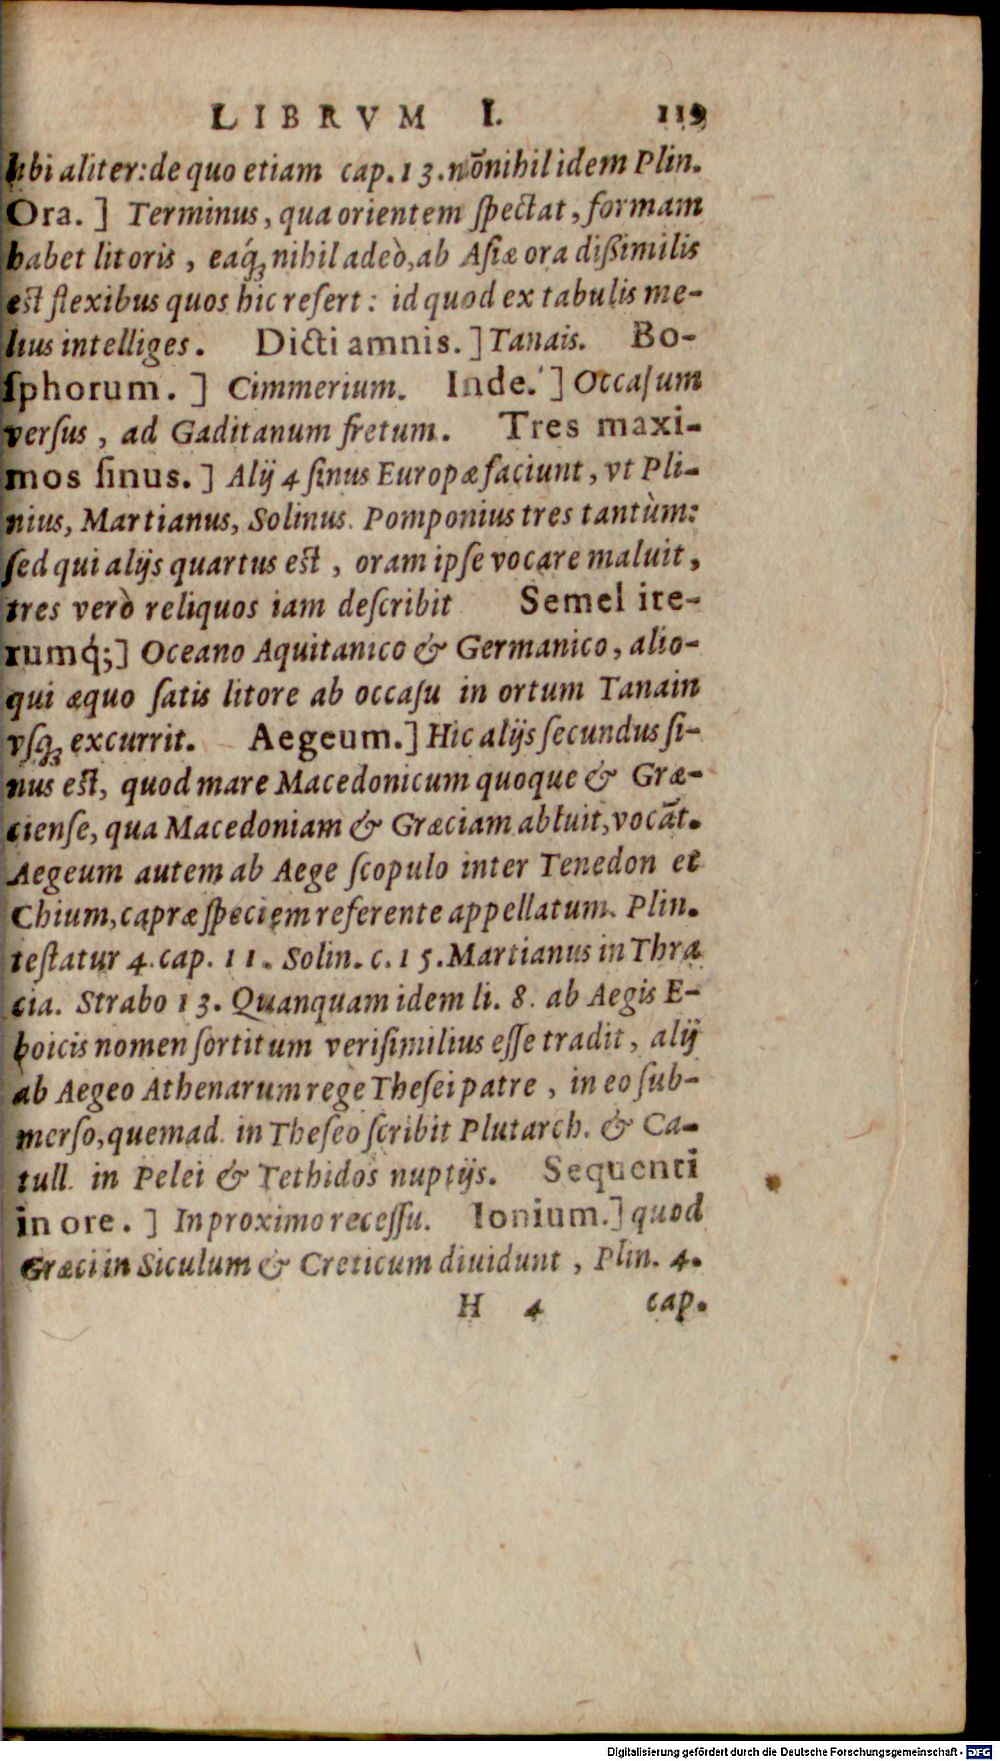 LIBRVM I. 119
libi aliter: de quo etiam cap. 13. nõnihil idem Plin.
Ora. ] Terminus, qua orientem ſpectat, formam
habet litoris, eaq́ꝫ nihil adeò, ab Aſiæ ora dißimilis
eſt flexibus quos hic refert: id quod ex tabulis me-
lius intelliges. Dicti amnis. ] Tanais. Bo-
ſphorum. ] Cimmerium. Inde. ] Occaſum
verſus, ad Gaditanum fretum. Tres maxi-
mos ſinus. ] Alij 4 ſinus Europæ faciunt, vt Pli-
nius, Martianus, Solinus. Pomponius tres tantùm:
ſed qui alijs quartus eſt, oram ipſe vocare maluit,
tres verò reliquos iam deſcribit Semel ite-
rumq́; ] Oceano Aquitanico & Germanico, alio-
qui æquo ſatis litore ab occaſu in ortum Tanain
vſqꝫ excurrit. Aegeum. ] Hic alijs ſecundus ſi-
nus eſt, quod mare Macedonicum quoque & Græ-
cienſe, qua Macedoniam & Græciam abluit, vocãt.
Aegeum autem ab Aege ſcopulo inter Tenedon et
Chium, capræ ſpeciem referente appellatum. Plin.
teſtatur 4. cap. 11. Solin. c. 15. Martianus in Thra
cia. Strabo 13. Quanquam idem li. 8. ab Aegis E-
boicis nomen ſortitum veriſimilius eſſe tradit, alij
ab Aegeo Athenarum rege Theſei patre, in eo ſub-
merſo, quemad. in Theſeo ſcribit Plutarch. & Ca-
tull. in Pelei & Tethidos nuptijs. Sequenti
in ore. ] In proximo receſſu. Ionium. ] quod
Græci in Siculum & Creticum diuidunt, Plin. 4.
H 4 cap.
Digitalisierung gefördert durch die Deutsche Forschungsgemeinschaft - DFG